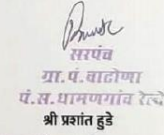 सरपंच
ग्रा. पं. वाढोणा
पं. स. धामणगांव रेल्वे
श्री प्रशांत हुडे